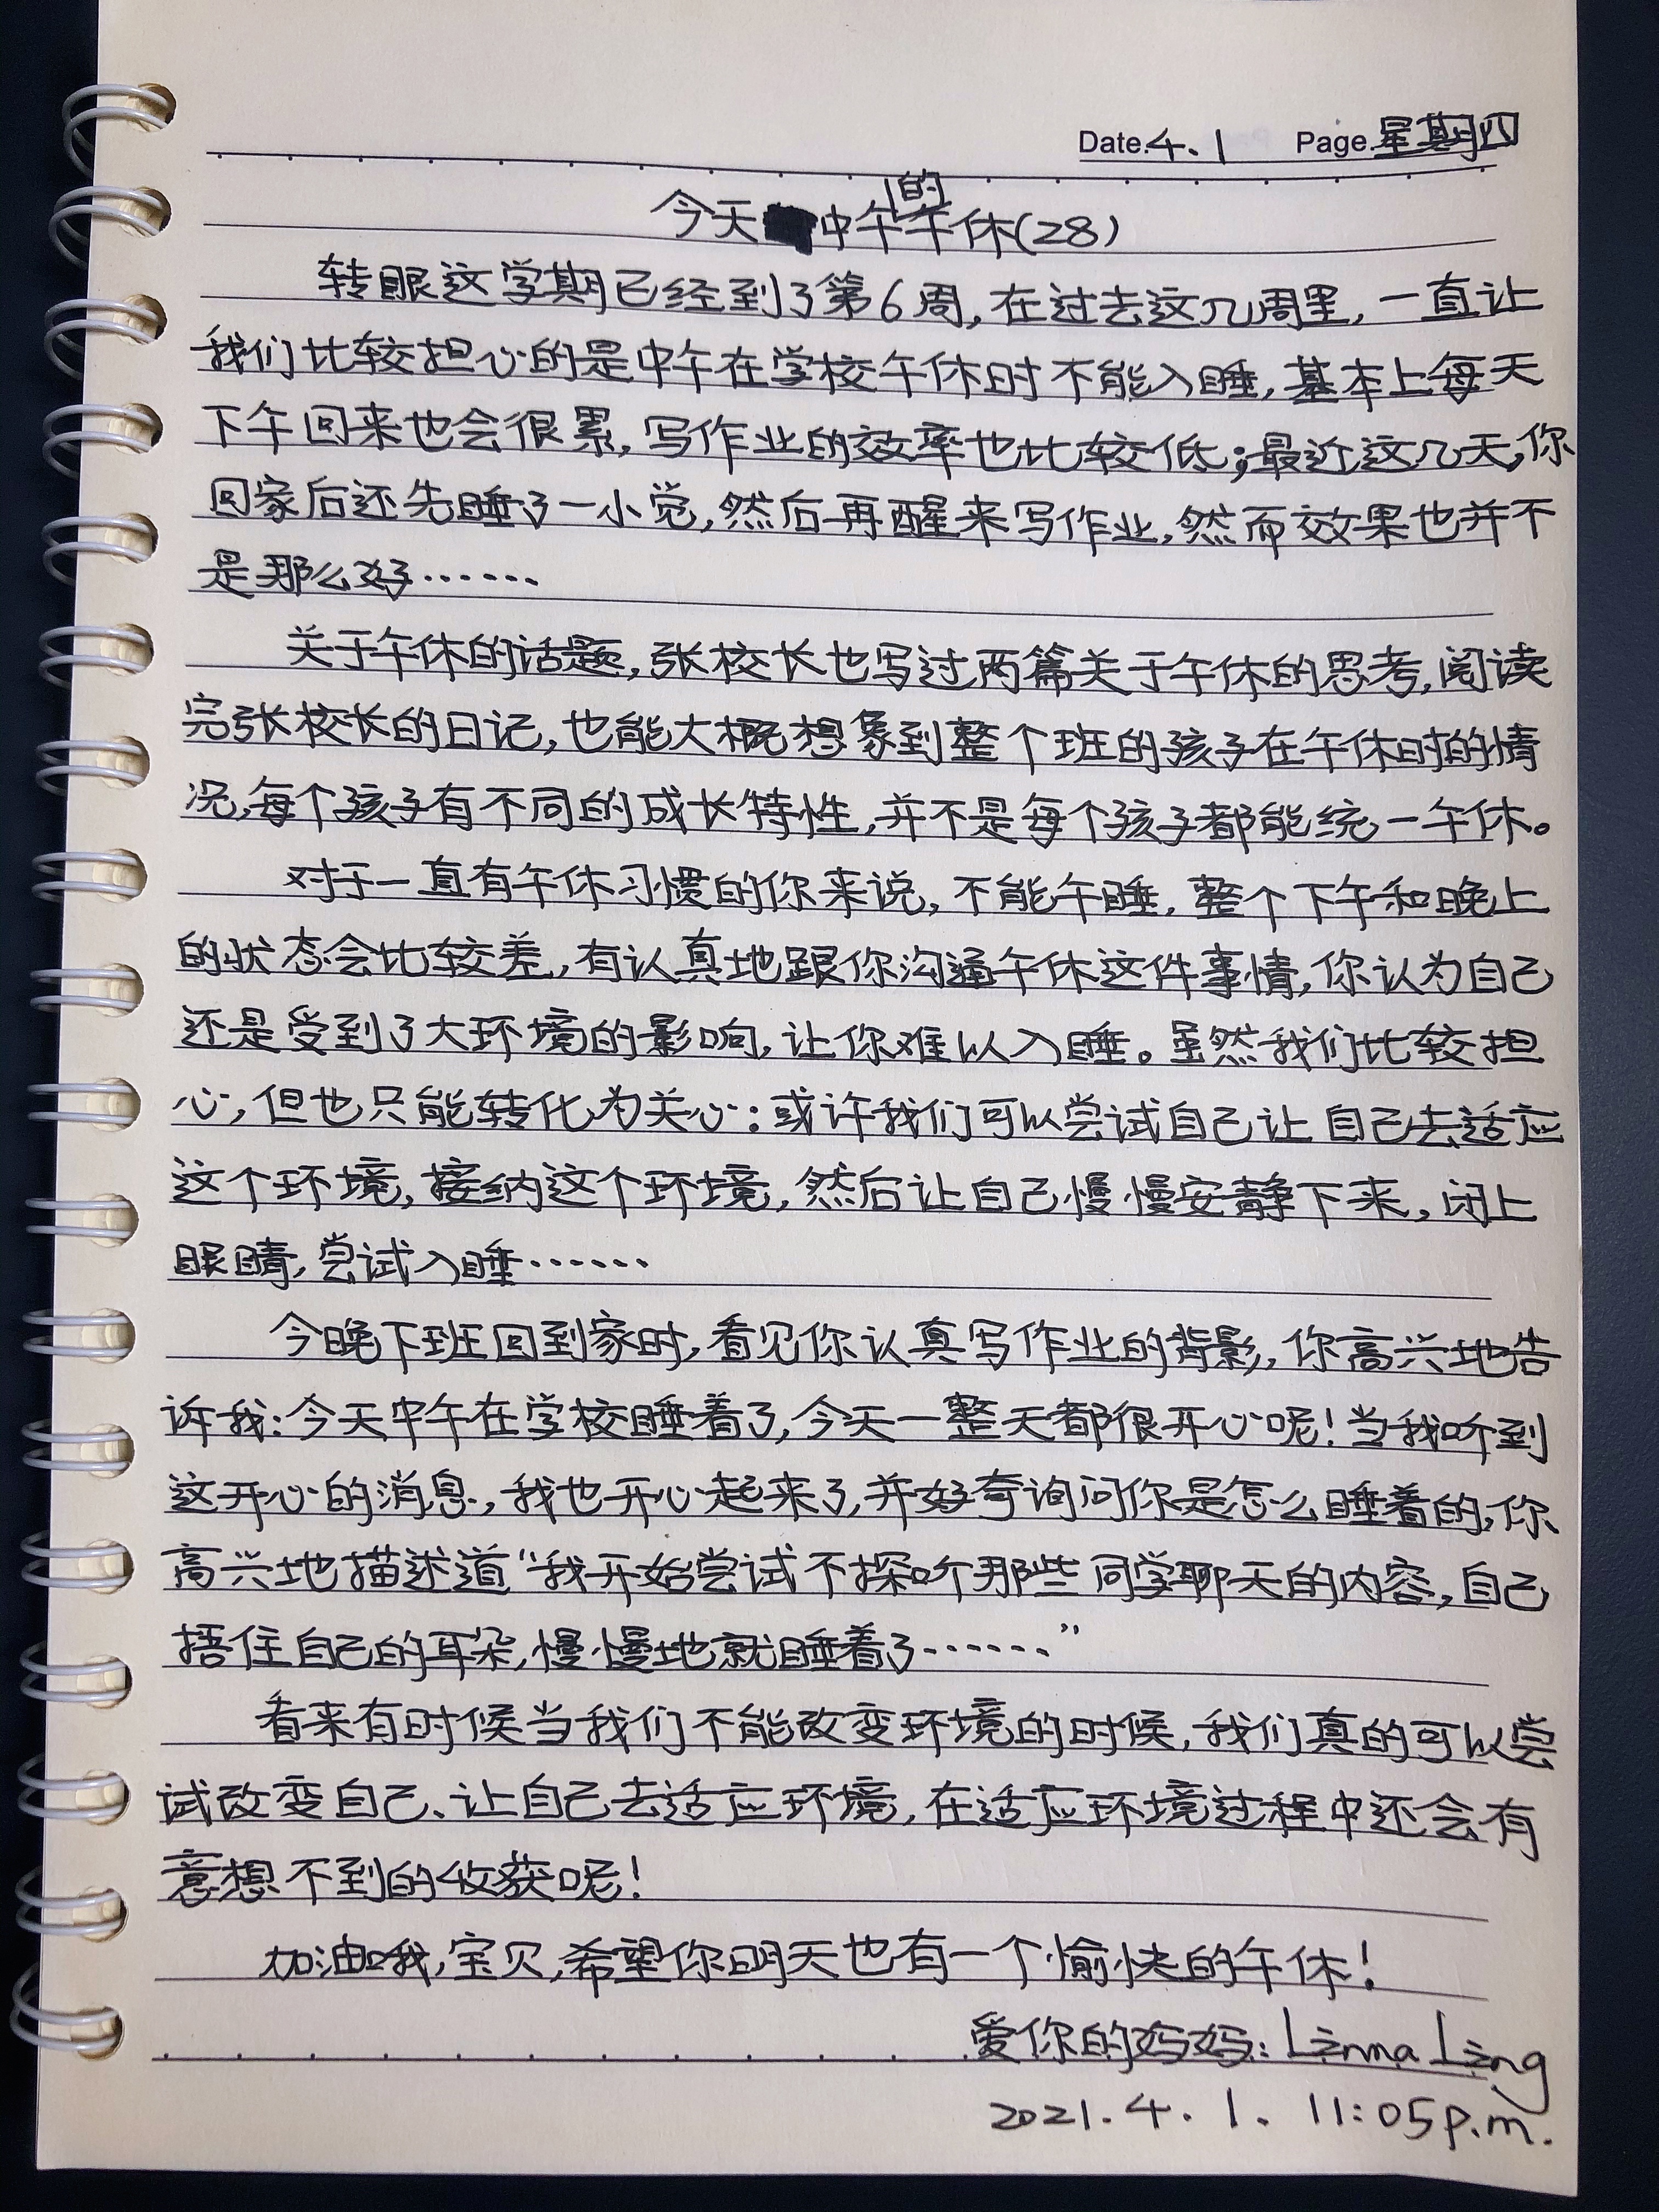 Date.4.1 Page.星期四
今天中午的午休(28)
转眼这学期已经到了第6周,在过去这几周里,一直让
我们比较担心的是中午在学校午休时不能入睡,基本上每天
下午回来也会很累,写作业的效率也比较低;最近这几天,你
回家后还先睡了一小觉,然后再醒来写作业,然而效果也并不
是那么好……
关于午休的话题,张校长也写过两篇关于午休的思考,阅读
完张校长的日记,也能大概想象到整个班的孩子在午休时的情
况,每个孩子有不同的成长特性,并不是每个孩子都能统一午休。
对于一直有午休习惯的你来说,不能午睡,整个下午和晚上
的状态会比较差,有认真地跟你沟通午休这件事情,你认为自己
还是受到了大环境的影响,让你难以入睡。虽然我们比较担
心,但也只能转化为关心:或许我们可以尝试自己让自己去适应
这个环境,接纳这个环境,然后让自己慢慢安静下来,闭上
眼睛,尝试入睡……
今晚下班回到家时,看见你认真写作业的背影,你高兴地告
诉我:今天中午在学校睡着了,今天一整天都很开心呢!当我听到
这开心的消息,我也开心起来了,并好奇询问你是怎么睡着的,你
高兴地描述道“我开始尝试不探听那些同学聊天的内容,自己
捂住自己的耳朵,慢慢地就睡着了……”
看来有时候当我们不能改变环境的时候,我们真的可以尝
试改变自己、让自己去适应环境,在适应环境过程中还会有
意想不到的收获呢!
加油哦,宝贝,希望你明天也有一个愉快的午休!
爱你的妈妈:Linna Ling
2021.4.1. 11:05p.m.